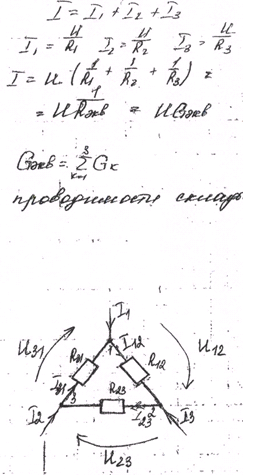 I = I₁ + I₂ + I₃
I₁ = U/R₁ I₂ = U/R₂ I₃ = U/R₃
I = U · (1/R₁ + 1/R₂ + 1/R₃) =
= U 1/Rэкв = U Gэкв
Gэкв = ∑³ₖ₌₁ Gк
проводимости склад.
I₁
U31 R31 1 I12 R12 U12
I31 3 R23 2
I2 I23 I3
U23